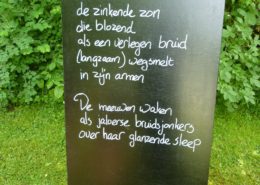 de zinkende zon
die blozend
als een verlegen bruid
(langzaam) wegsmelt
in zijn armen
De meeuwen waken
als jaloerse bruidsjonkers
over haar glanzende sleep